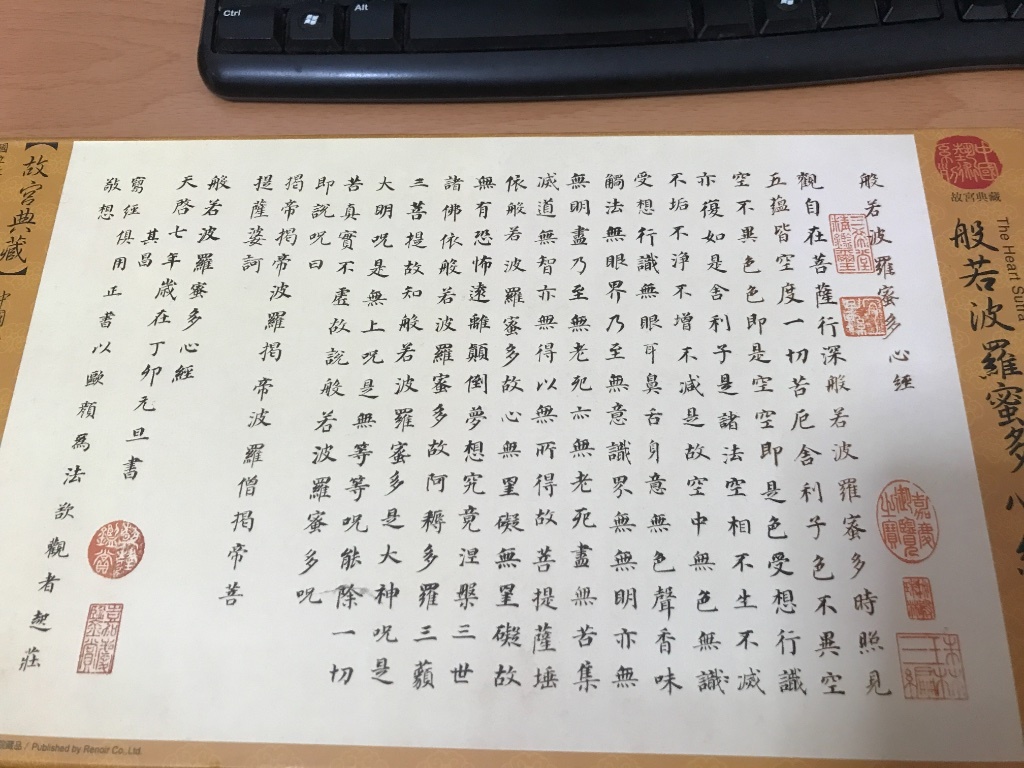 Ctrl
Alt
中國藝術系列
故宮典藏
The Heart Sutra
般若波羅蜜多心經
般若波羅蜜多心經
觀自在菩薩行深般若波羅蜜多時照見
五蘊皆空度一切苦厄舍利子色不異空
空不異色色即是空空即是色受想行識
亦復如是舍利子是諸法空相不生不滅
不垢不淨不增不減是故空中無色無識
受想行識無眼耳鼻舌身意無色聲香味
觸法無眼界乃至無意識界無無明亦無
無明盡乃至無老死亦無老死盡無苦集
滅道無智亦無得以無所得故菩提薩埵
依般若波羅蜜多故心無罣礙無罣礙故
無有恐怖遠離顛倒夢想究竟涅槃三世
諸佛依般若波羅蜜多故阿耨多羅三藐
三菩提故知般若波羅蜜多是大神呪是
大明呪是無上呪是無等等呪能除一切
苦真實不虛故說般若波羅蜜多呪
即說呪曰
揭帝揭帝波羅揭帝波羅僧揭帝菩
提薩婆訶
般若波羅蜜多心經
天啓七年歲在丁卯元旦書
其昌
寫經俱用正書以歐顏為法欲觀者起莊
敬想
【故宮典藏】
Published by Renoir Co., Ltd.